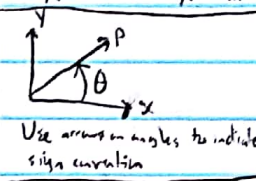 y
P
θ
x
Use arrows on angles to indicate
sign convention